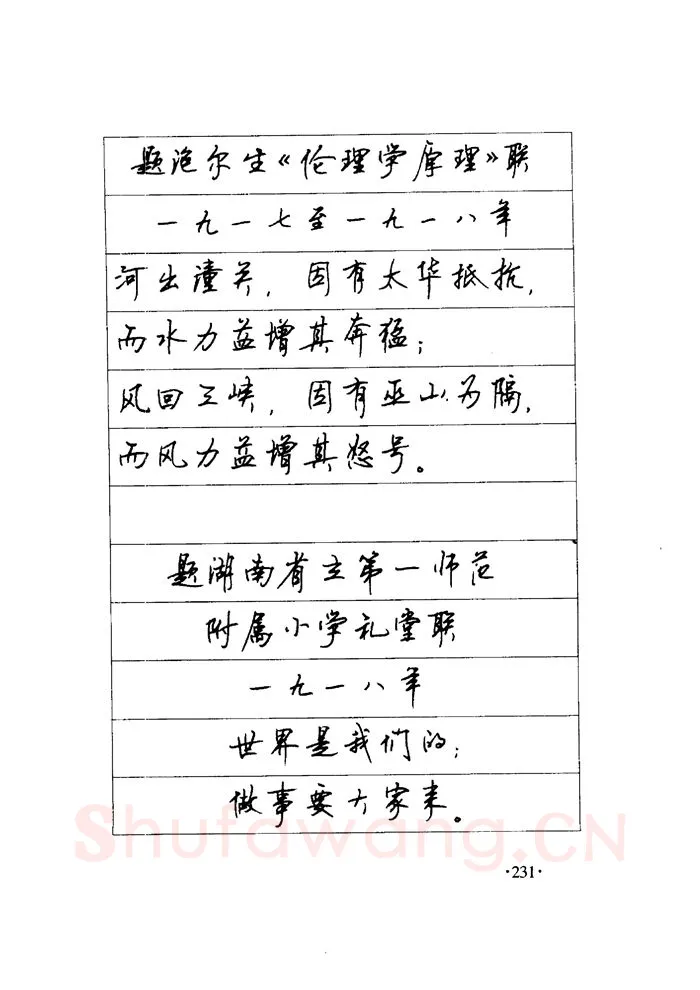 题泡尔生《伦理学原理》联
一九一七至一九一八年
河出潼关，因有太华抵抗，
而水力益增其奔猛；
风回三峡，因有巫山为隔，
而风力益增其怒号。
题湖南省立第一师范
附属小学礼堂联
一九一八年
世界是我们的；
做事要大家来。
Shufawang.CN
·231·